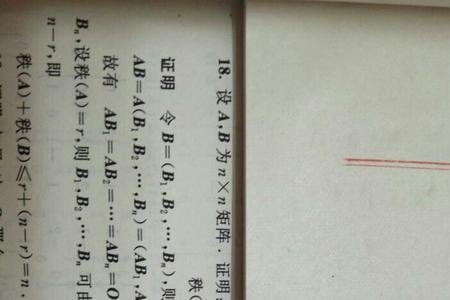 18. 设 A,B 为 n×n 矩阵. 证明:
秩(
证明 令 B=(B₁,B₂,⋯,Bₙ),则
AB=A(B₁,B₂,⋯,Bₙ)=(AB₁,A
故有 AB₁=AB₂=⋯=ABₙ=O
Bₙ,设秩(A)=r,则 B₁,B₂,⋯,Bₙ 可由
n-r,即
秩(A)+秩(B)≤r+(n-r)=n.